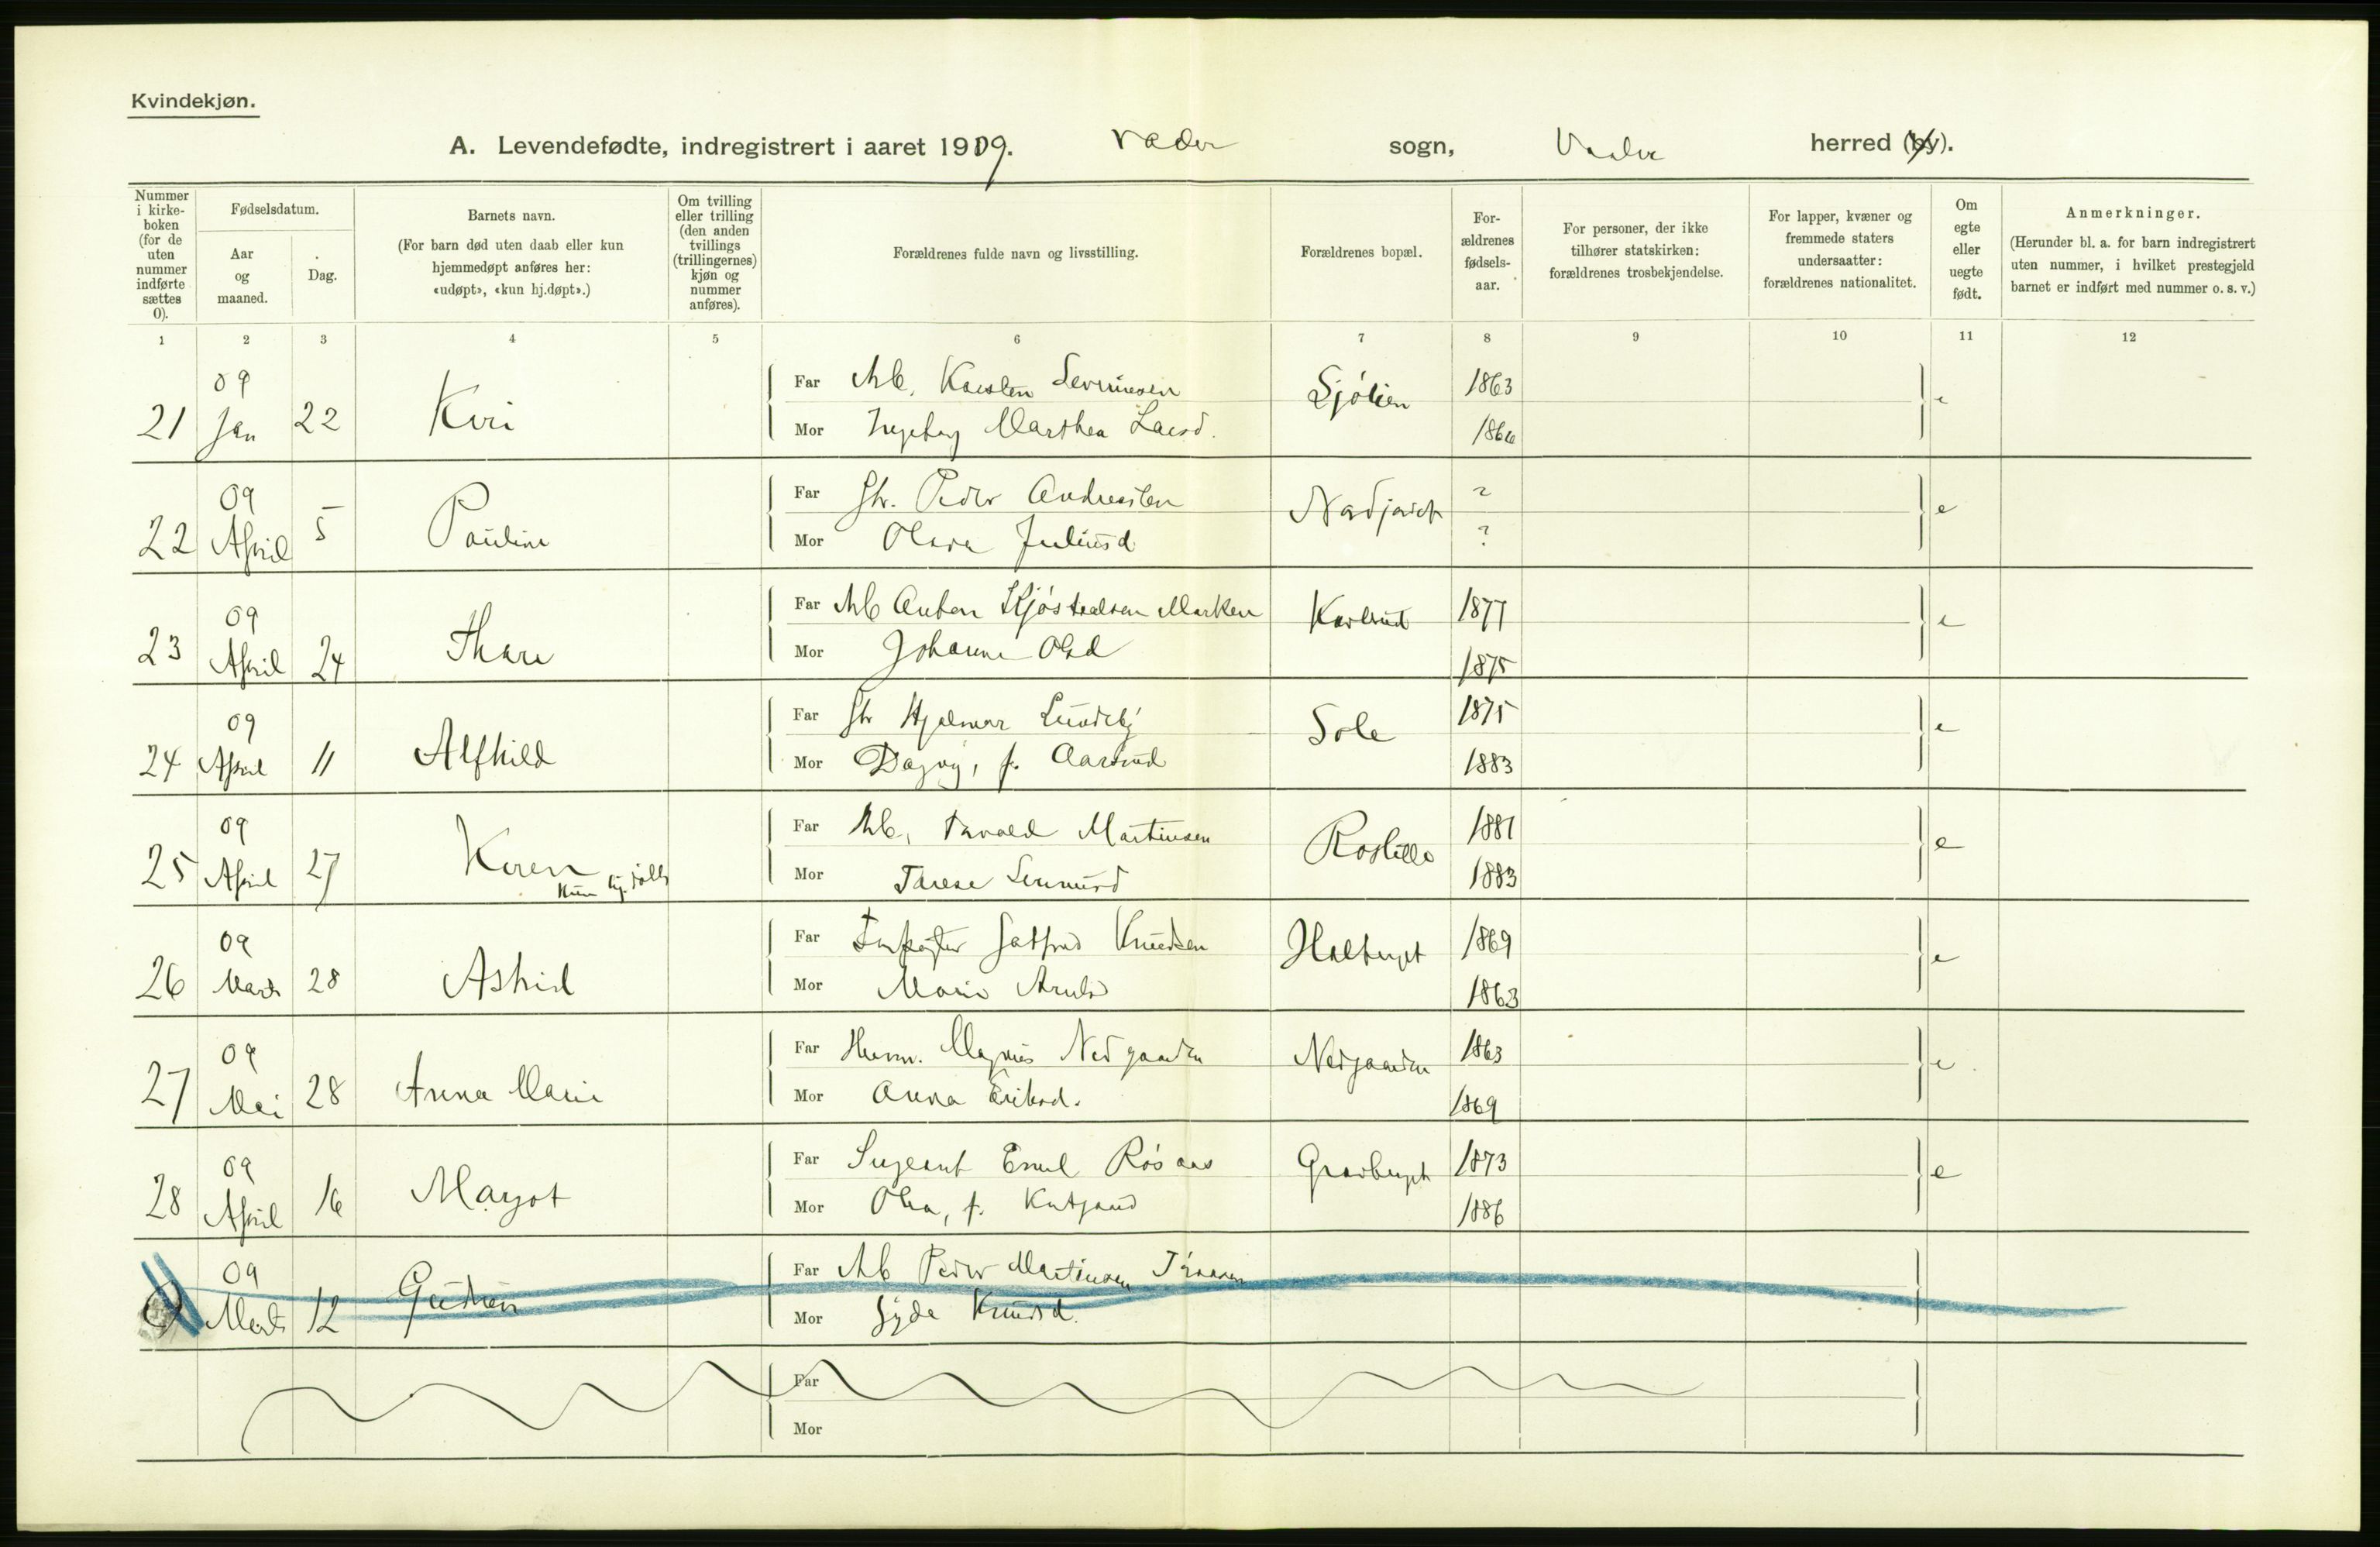 Kvindekjøn.
A. Levendefødte, indregistrert i aaret 1909. Vaaler sogn, Vaaler herred (by).
Nummer i kirke-boken (for de uten nummer indførte sættes 0).
Fødselsdatum.
Aar og maaned.
Dag.
Barnets navn.
(For barn død uten daab eller kun hjemmedøpt anføres her: «udøpt», «kun hj.døpt».)
Om tvilling eller trilling (den anden tvillings (trillingernes) kjøn og nummer anføres).
Forældrenes fulde navn og livsstilling.
Forældrenes bopæl.
For-ældrenes fødsels-aar.
For personer, der ikke tilhører statskirken: forældrenes trosbekjendelse.
For lapper, kvæner og fremmede staters undersaatter: forældrenes nationalitet.
Om egte eller uegte født.
Anmerkninger.
(Herunder bl. a. for barn indregistrert uten nummer, i hvilket prestegjeld barnet er indført med nummer o. s. v.)
1 2 3 4 5 6 7 8 9 10 11 12
21 09 Jan 22 Kari
Far Arb. Karsten Severinsen Sjølien 1863 e
Mor Ingeborg Marthea Larsd. 1866
22 09 April 5 Pauline
Far Gbr. Peder Andreassen ? e
Mor Olava Juliusd ?
23 09 April 24 Thara
Far Arb Anton Kjøstealsen Marken Karlsrud 1877 e
Mor Johanne Olsd 1875
24 09 April 11 Alfhild
Far Gbr Hjalmar Lundeby Sole 1875 e
Mor Dagny, f. Aarsrud 1883
25 09 April 27 Karen kun hj.døbt
Far Arb. Martinsen 1881 e
Mor 1883
26 09 Marts 28 Astrid
Far Gotfred Knudsen 1869 e
Mor Marie 1863
27 09 Mai 28 Anna Marie
Far Magnus Nedgaarden Nedgaarden 1863 e
Mor Anna Eriksd. 1869
28 09 April 16 Margot
Far Sergeant Emil Røsaas Gravberget 1873 e
Mor Olea, f. 1886
0 09 Marts 12 Gudrun
Far Arb Peder Martinsen
Mor Gyda Knudsd.
Far
Mor